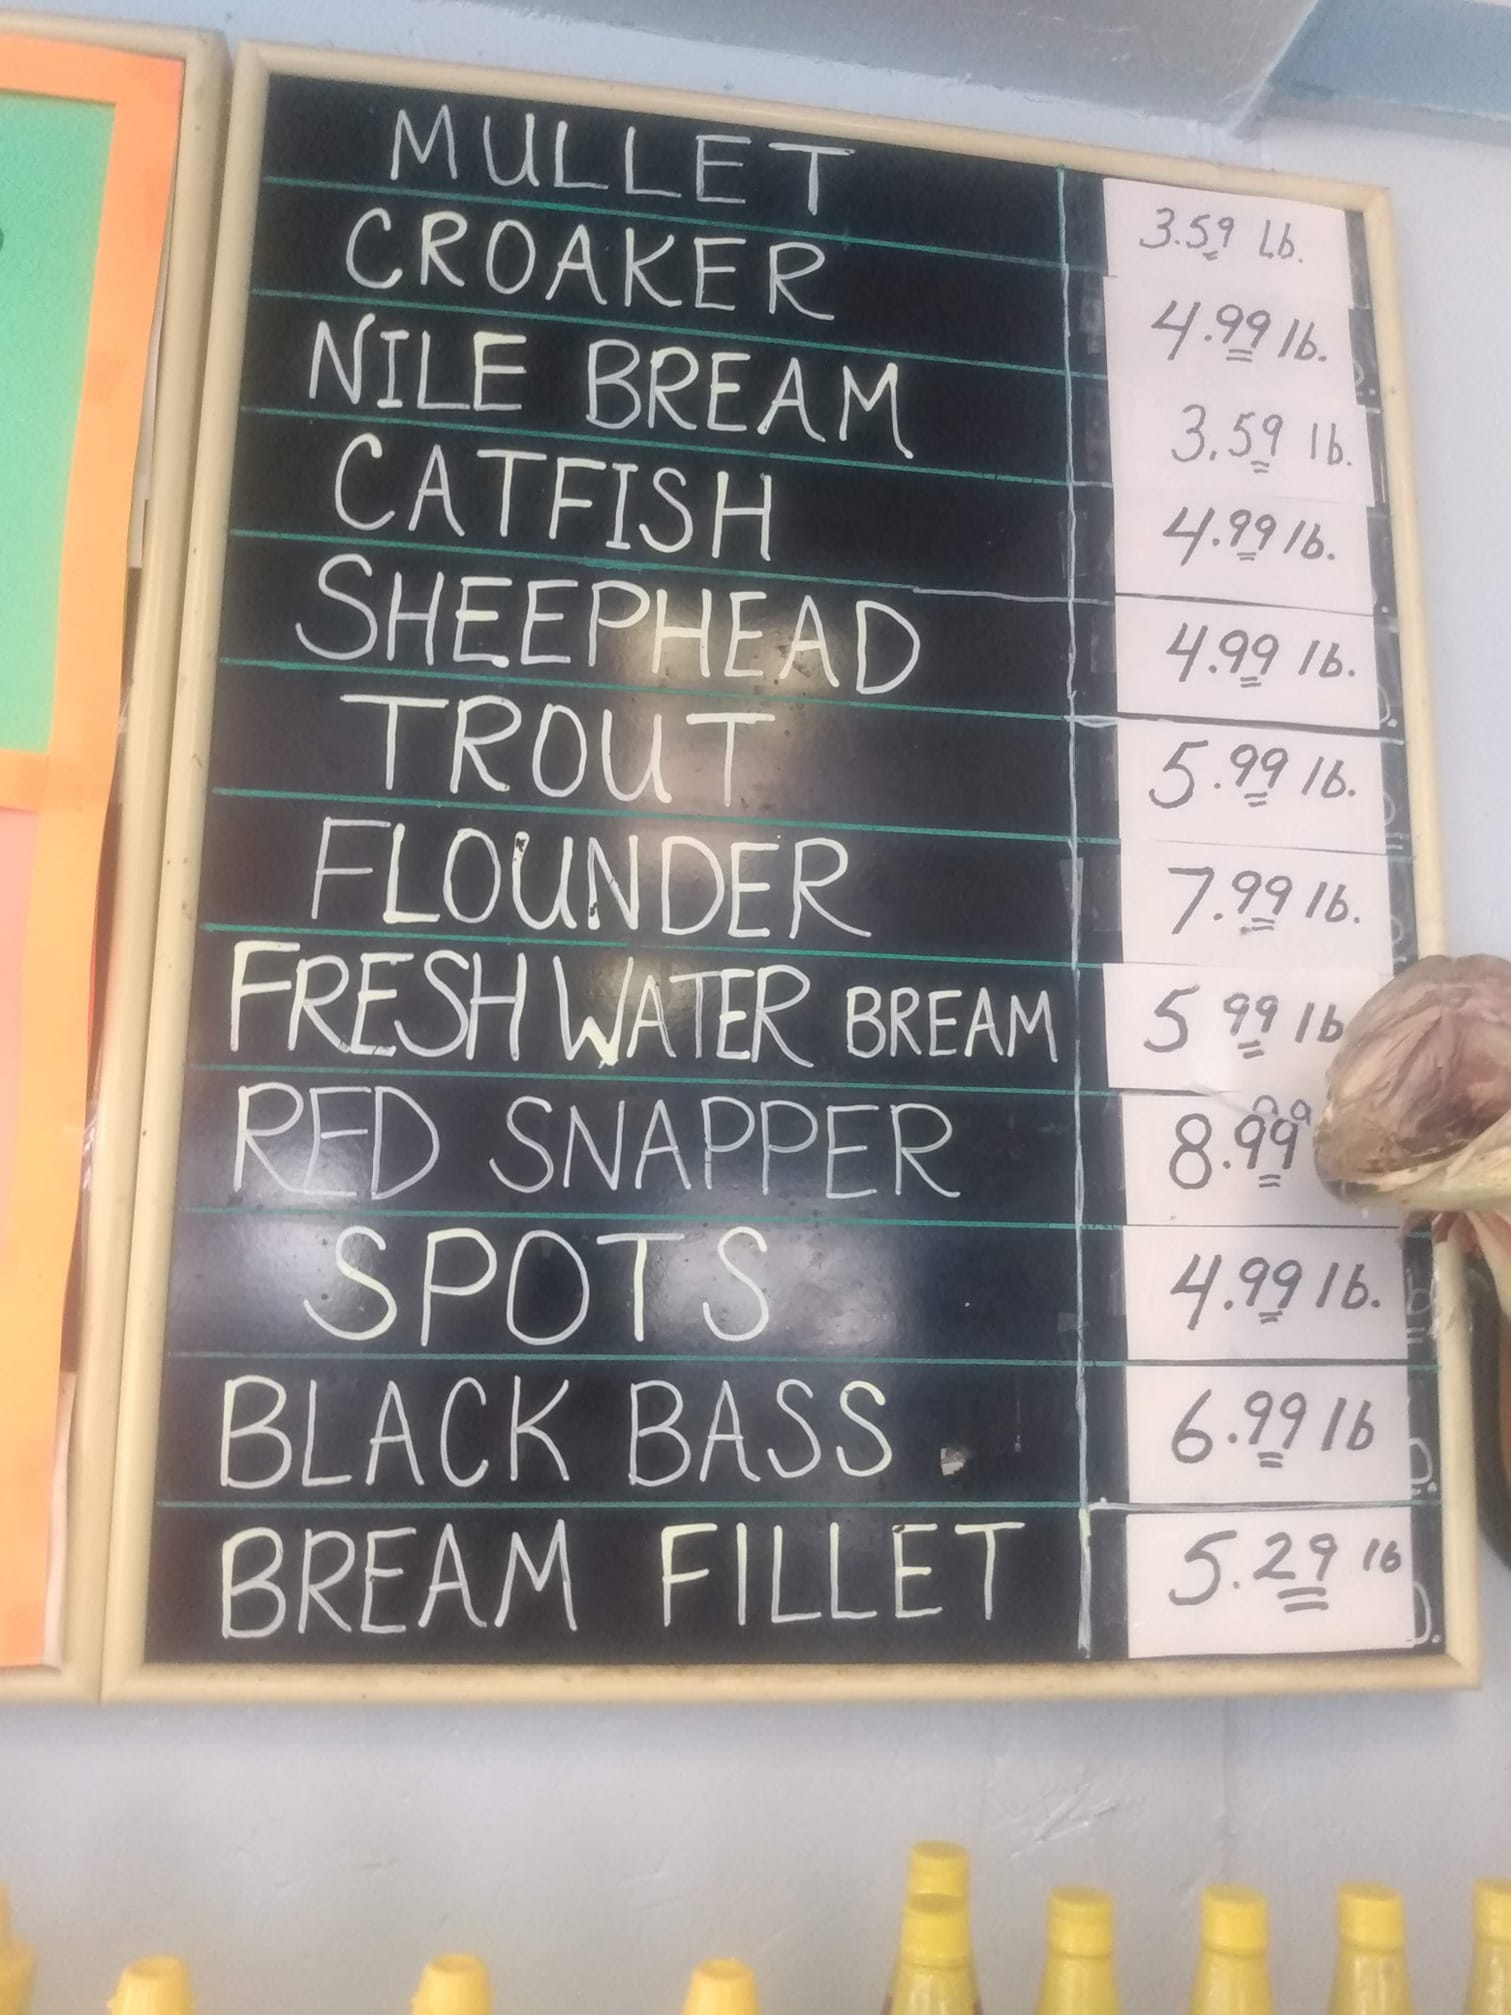 MULLET 3.59 Lb.
CROAKER 4.99 lb.
NILE BREAM 3.59 lb.
CATFISH 4.99 lb.
SHEEPHEAD 4.99 lb.
TROUT 5.99 lb.
FLOUNDER 7.99 lb.
FRESH WATER BREAM 5 99 lb
RED SNAPPER 8.99
SPOTS 4.99 lb.
BLACK BASS 6.99 lb
BREAM FILLET 5.29 lb